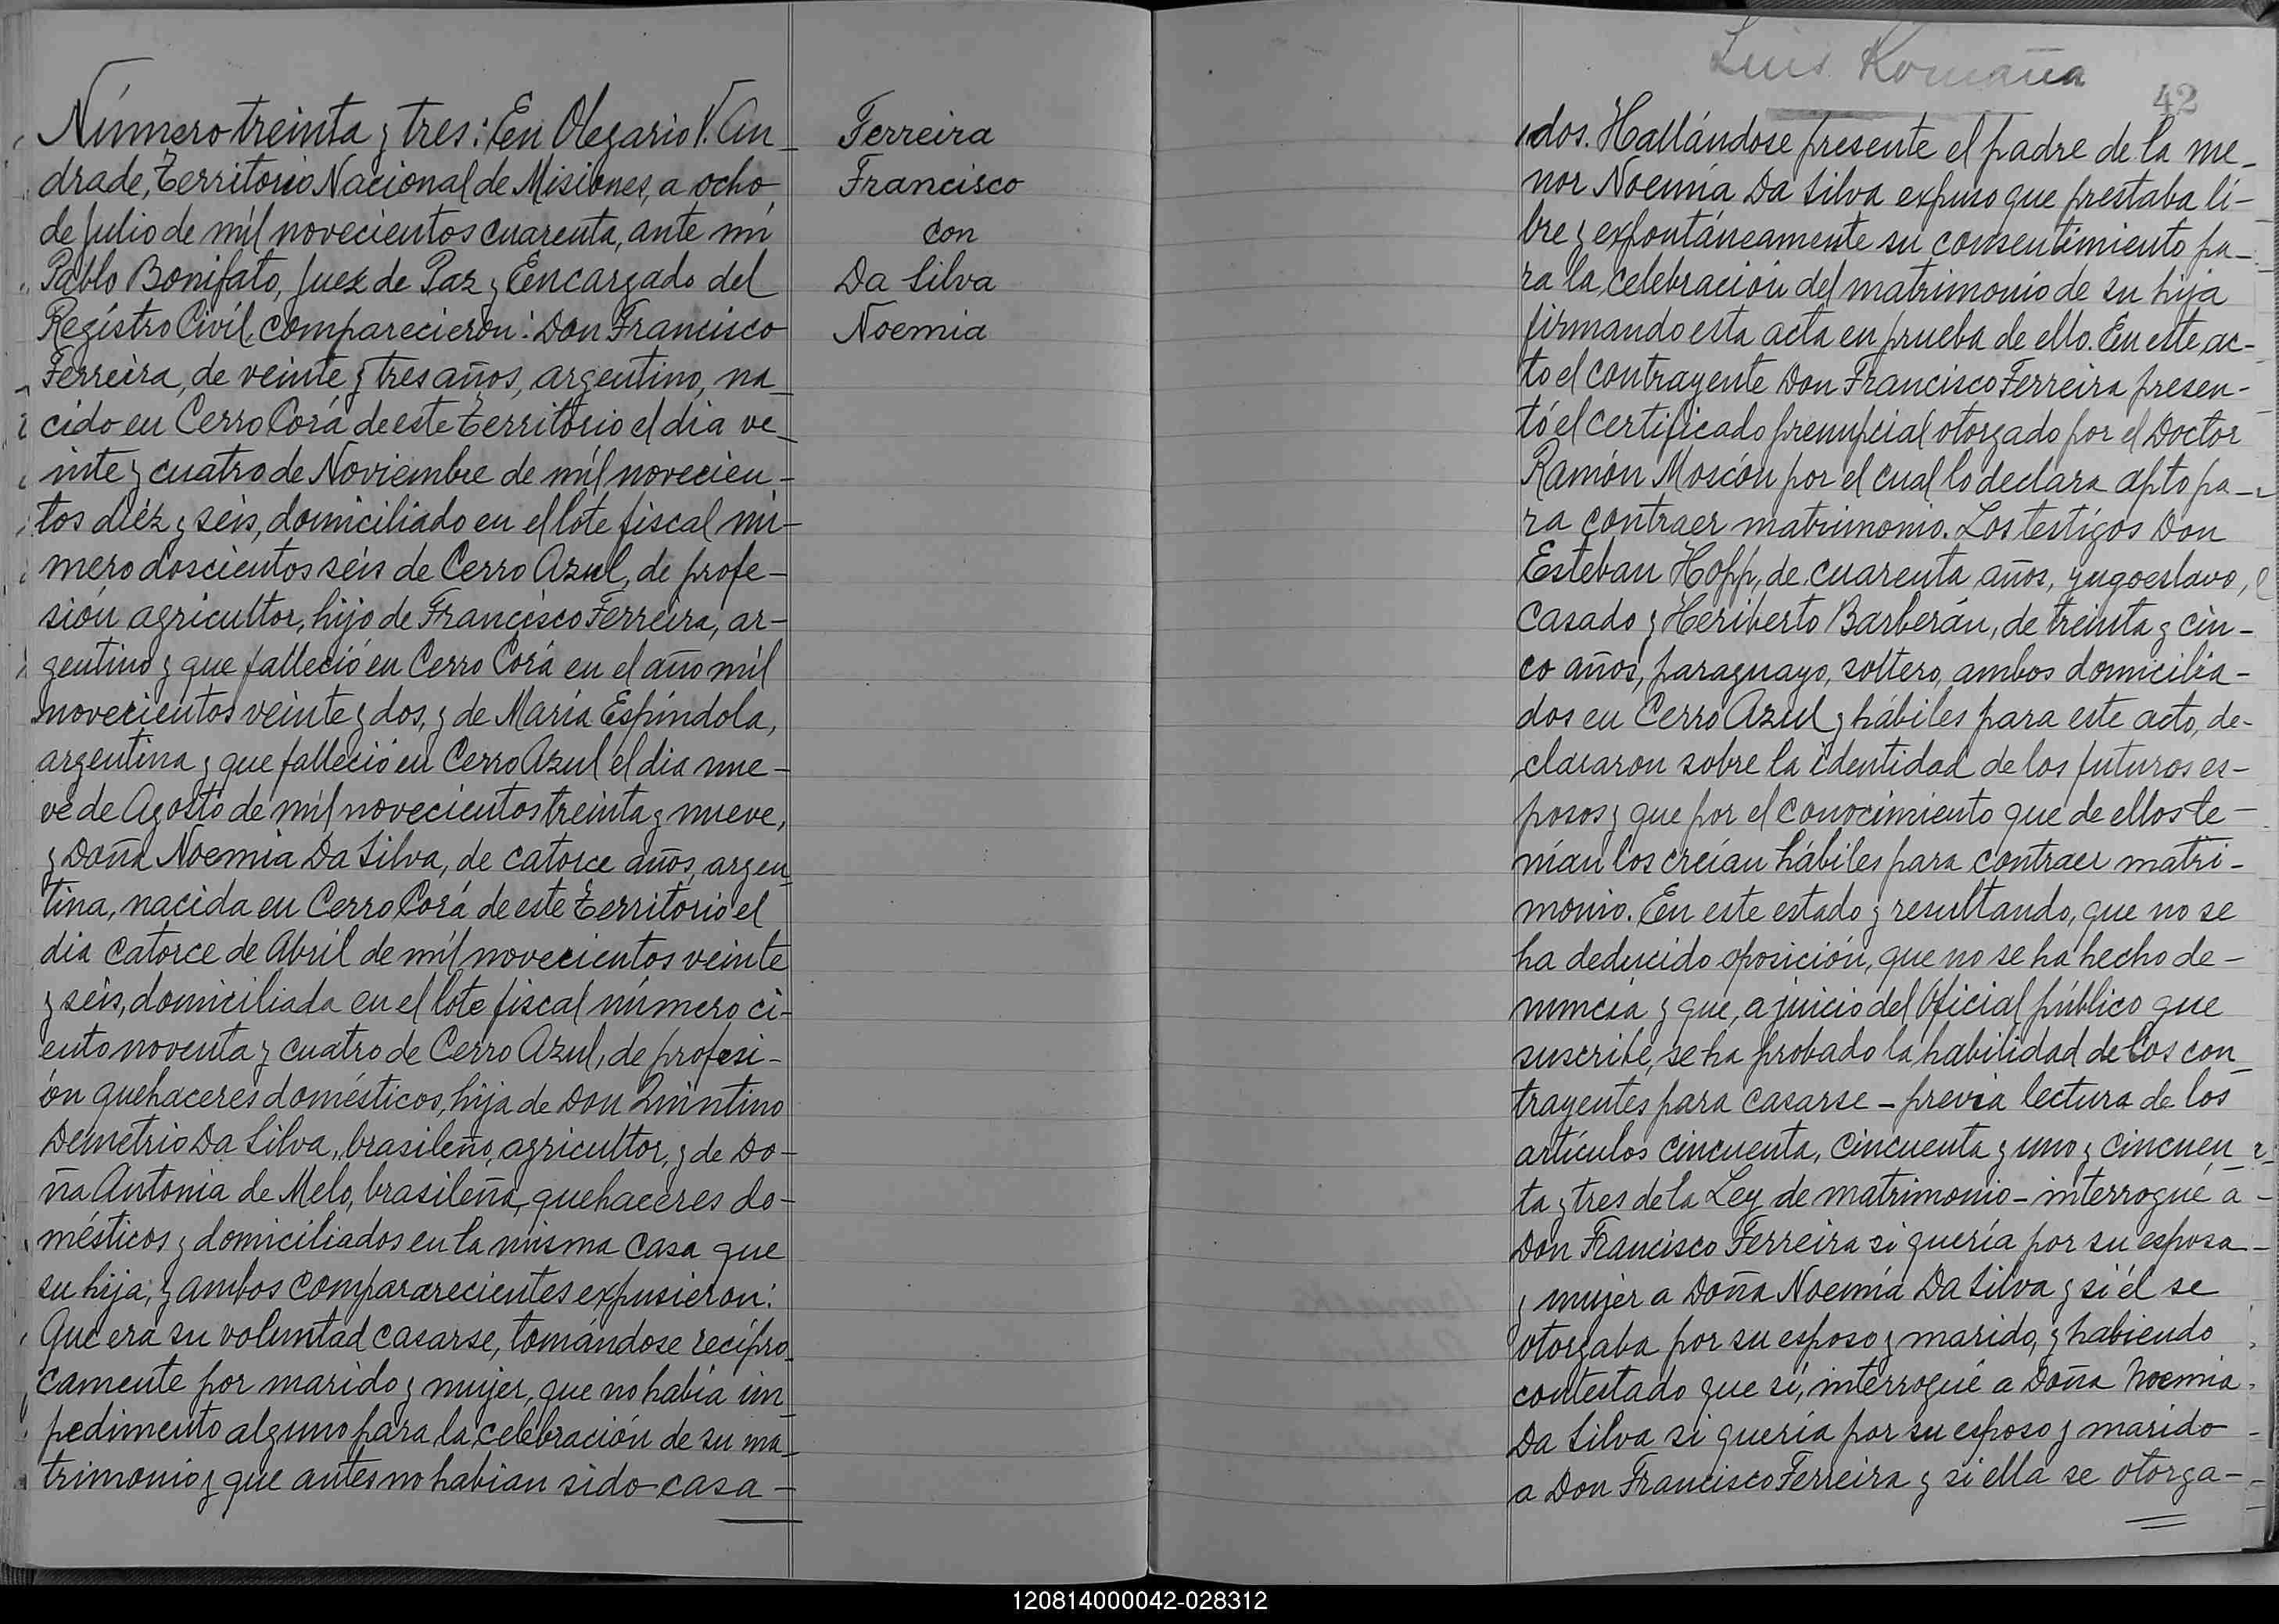 Número treinta y tres: En Olegario V. An_
drade, Territorio Nacional de Misiones, a ocho
de Julio de mil novecientos cuarenta, ante mi
Pablo Bonifato, Juez de Paz y Encargado del
Registro Civil, comparecieron: Don Francisco
Ferreira, de veinte y tres años, argentino, na_
cido en Cerro Corá de este Territorio el dia ve_
inte y cuatro de Noviembre de mil novecien_
tos diéz y séis, domiciliado en el lote fiscal nú-
mero doscientos séis de Cerro Azul, de profe-
sión agricultor, hijo de Francisco Ferreira, ar-
gentino y que falleció en Cerro Corá en el año mil
novecientos veinte y dos, y de María Espíndola,
argentina y que falleció en Cerro Azul el dia nue-
ve de Agosto de mil novecientos treinta y nueve,
y Doña Noemia Da Silva, de catorce años, argen_
tina, nacida en Cerro Corá de este Territorio el
dia catorce de Abril de mil novecientos veinte
y séis, domiciliada en el lote fiscal número ci-
ento noventa y cuatro de Cerro Azul, de profesi-
ón quehaceres domésticos, hija de Don Quintino
Demetrio Da Silva, brasileño, agricultor, y de Do-
ña Antonia de Melo, brasileña, quehaceres do-
mésticos y domiciliados en la misma casa que
su hija; y ambos compararecientes expusieron:
Que era su voluntad casarse, tomándose recípro_
camente por marido y mujer, que no había im_
pedimento alguno para la celebración de su ma_
trimonio y que antes no habian sido casa-
Ferreira
Francisco
con
Da Silva
Noemia
Luis Romaña
42
dos. Hallándose presente el padre de la me_
nor Noemia Da Silva expuso que prestaba li-
bre y expontáneamente su consentimiento pa_
ra la celebración del matrimonio de su hija
firmando esta acta en prueba de ello. En este ac-
to el contrayente Don Francisco Ferreira presen-
tó el certificado prenupcial otorgado por el Doctor
Ramón Moscón por el cual lo declara apto pa_
ra contraer matrimonio. Los testigos Don
Esteban Hopp, de cuarenta años, yugoeslavo,
casado y Heriberto Barberán, de treinta y cin-
co años, paraguayo, soltero, ambos domicilia-
dos en Cerro Azul y hábiles para este acto, de-
clararon sobre la identidad de los futuros es-
posos y que por el conocimiento que de ellos te-
nían los creían hábiles para contraer matri-
monio. En este estado y resultando, que no se
ha deducido oposición, que no se ha hecho de-
nuncia y que, a juicio del Oficial público que
suscribe, se ha probado la habilidad de los con_
trayentes para casarse - previa lectura de los
artículos cincuenta, cincuenta y uno y cincuen_
ta y tres de la Ley de matrimonio - interrogué a
Don Francisco Ferreira si quería por su esposa
y mujer a Doña Noemia Da Silva y si él se
otorgaba por su esposo y marido, y habiendo
contestado que sí, interrogué a Doña Noemia
Da Silva si quería por su esposo y marido
a Don Francisco Ferreira y si ella se otorga-
120814000042-028312